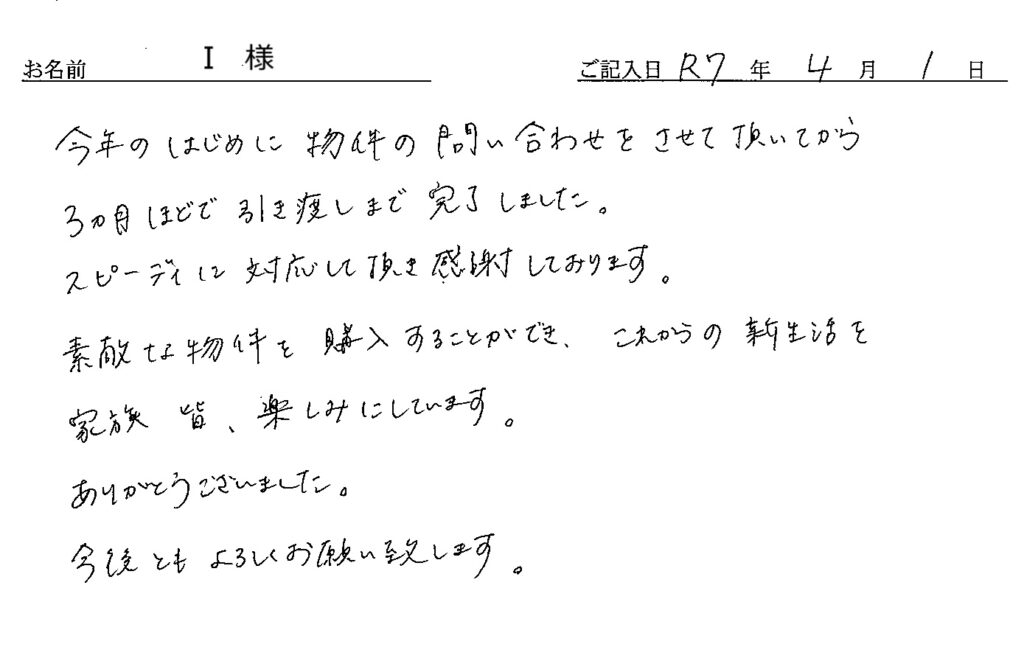 お名前 I 様 ご記入日 R7 年 4 月 1 日
今年のはじめに物件の問い合わせをさせて頂いてから
3ヵ月ほどで引き渡しまで完了しました。
スピーディに対応して頂き感謝しております。
素敵な物件を購入することができ、これからの新生活を
家族皆、楽しみにしています。
ありがとうございました。
今後ともよろしくお願い致します。